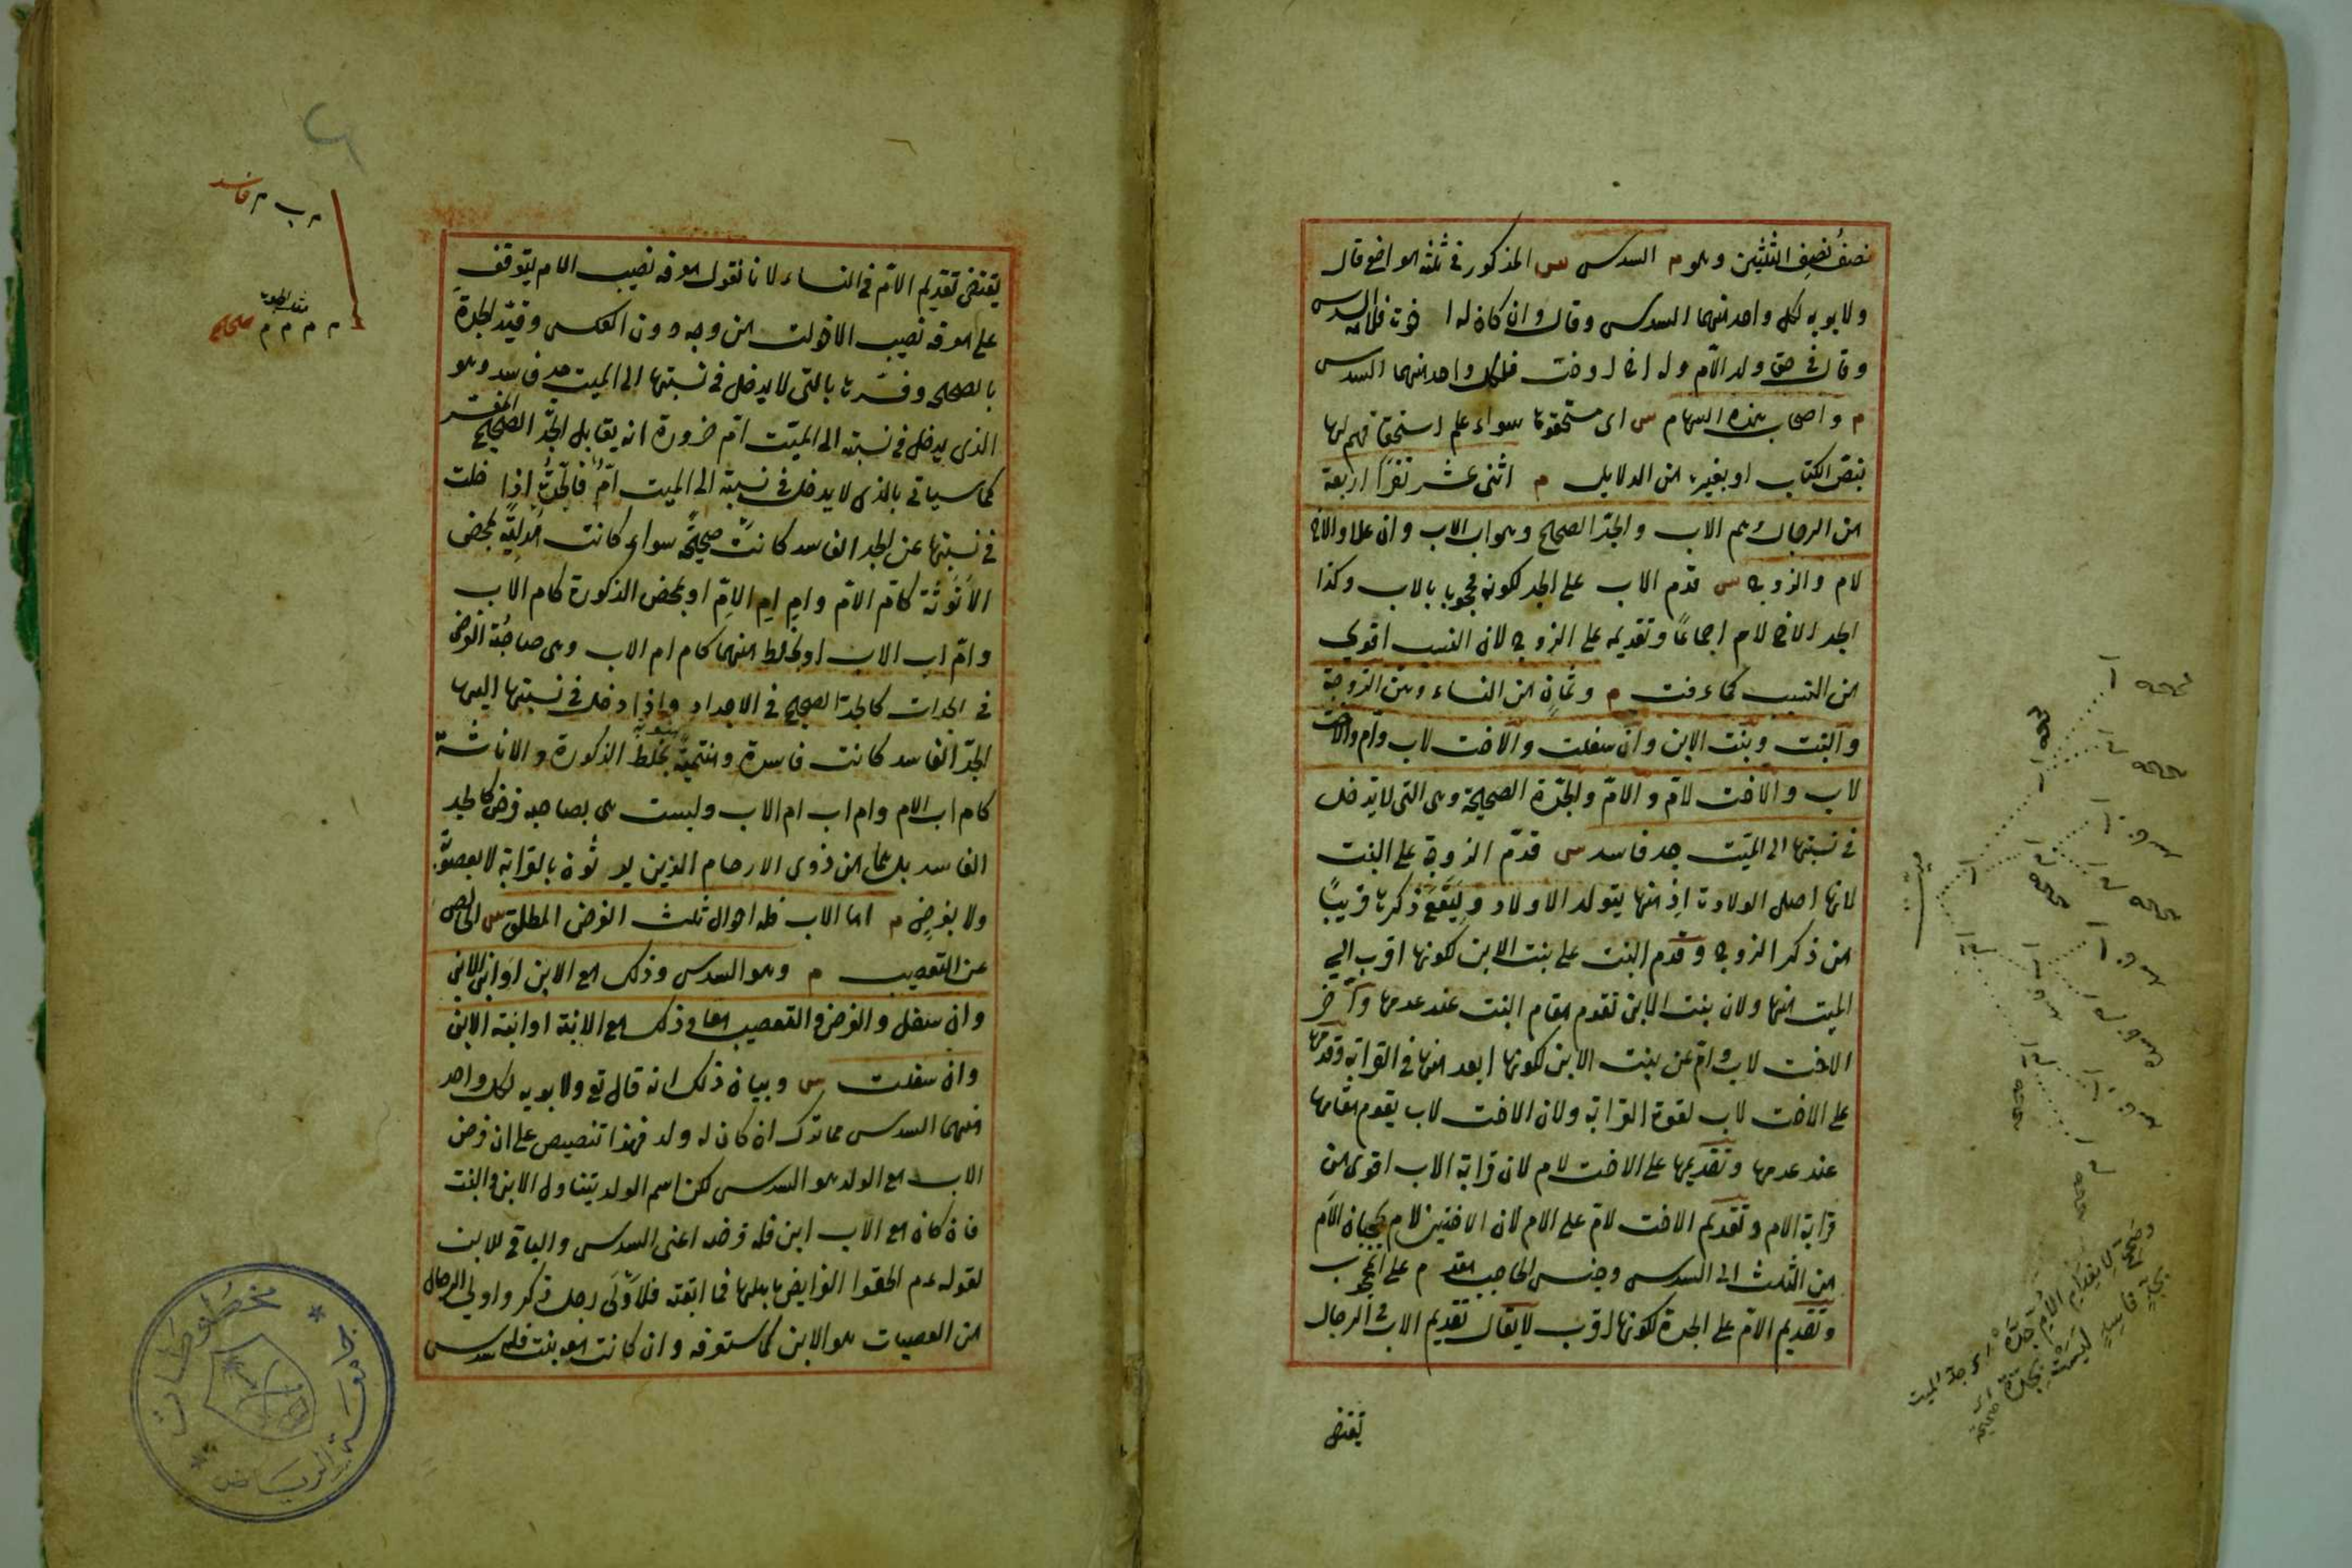 نصف نصف الثلثين وهو م السدس س المذكور في ثلثة مواضع قال
ولابويه لكل واحد منهما السدس وقال وان كان له اخوة فلامه السدس
وقال في حق ولد الام وله اخ او اخت فلكل واحد منهما السدس
م واصحاب هذه السهام س اى مستحقوها سواء علم استحقاقهم لها
بنص الكتاب او بغيره من الدلايل م اثنى عشر نفرا اربعة
من الرجال وهم الاب والجد الصحيح وهو اب الاب وان علا والاخ
لام والزوج س قدم الاب على الجد لكونه محجوبا بالاب وكذا
الجد الاخ لام اجماعا وتقديمه على الزوج لان النسب اقوى
من السبب كما عرفت م وثمان من النساء وهن الزوجة
والبنت وبنت الابن وان سفلت والاخت لاب وام والاخت
لاب والاخت لام والام والجدة الصحيحة وهى التى لا يدخل
فى نسبتها الى الميت جد فاسد س قدم الزوجة على البنت
لانها اصل الولادة اذ منها يتولد الاولاد وليقع ذكرها قريبا
من ذكر الزوج وقدم البنت على بنت الابن لكونها اقرب الى
الميت منها ولان بنت الابن تقوم مقام البنت عند عدمها وآخر
الاخت لاب وام عن بنت الابن لكونها ابعد منها فى القرابة وقدمها
على الاخت لاب لقوة القرابة ولان الاخت لاب يقوم مقامها
عند عدمها وتقديمها على الاخت لام لان قرابة الاب اقوى من
قرابة الام وتقديم الاخت لام على الام لان الاختين لام يحجبان الام
من الثلث الى السدس وجنس الحاجب مقدم على المحجوب
وتقديم الام على الجدة لكونها اقرب لا يقال تقديم الاب فى الرجال
يقتضى
ميت
يقتضى تقديم الام فى النساء لانا نقول معرفة نصيب الام يتوقف
على معرفة نصيب الاخوات من وجه دون العكس وقيد الجدة
بالصحيحة وفسرها بالتى لا يدخل فى نسبتها الى الميت جد فاسد وهو
الذى يدخل فى نسبته الى الميت ام ضرورة انه يقابل الجد الصحيح المفسر
كما سياتى بالذى لا يدخل فى نسبته الى الميت ام فالجدة اذا خلت
فى نسبتها عن الجد الفاسد كانت صحيحة سواء كانت مدلية بمحض
الانوثة كام الام وام ام الام او بمحض الذكورة كام الاب
وام اب الاب او بخلط منهما كام ام الاب وهى صاحبة الفرض
فى الجدات كالجد الصحيح فى الاجداد واذا دخل فى نسبتها اليها
الجد الفاسد كانت فاسدة ومنتمية بخلط الذكورة والاناثة
كام اب الام وام اب ام الاب وليست هى بصاحبة فرض كالجد
الفاسد بل هما من ذوى الارحام الذين يورثون بالقرابة لا بعصوبة
ولا بفرض م اما الاب فله احوال ثلث الفرض المطلق س الخالص
عن التعصيب م وهو السدس وذلك مع الابن او ابن الابن
وان سفل والفرض والتعصيب معا وذلك مع الابنة او ابنة الابن
وان سفلت س وبيان ذلك انه قال تع ولابويه لكل واحد
منهما السدس مما ترك ان كان له ولد فهذا تنصيص على ان فرض
الاب مع الولد هو السدس لكن اسم الولد يتناول الابن والبنت
فان كان مع الاب ابن فله فرضه اعنى السدس والباقى للابن
لقوله عم الحقوا الفرايض باهلها فما ابقته فلاولى رجل ذكر واولى الرجال
من العصبات هو الابن كما ستعرفه وان كانت معه بنت فله سدس
فاسد
صحيح
جامعة الرياض
مخطوطات